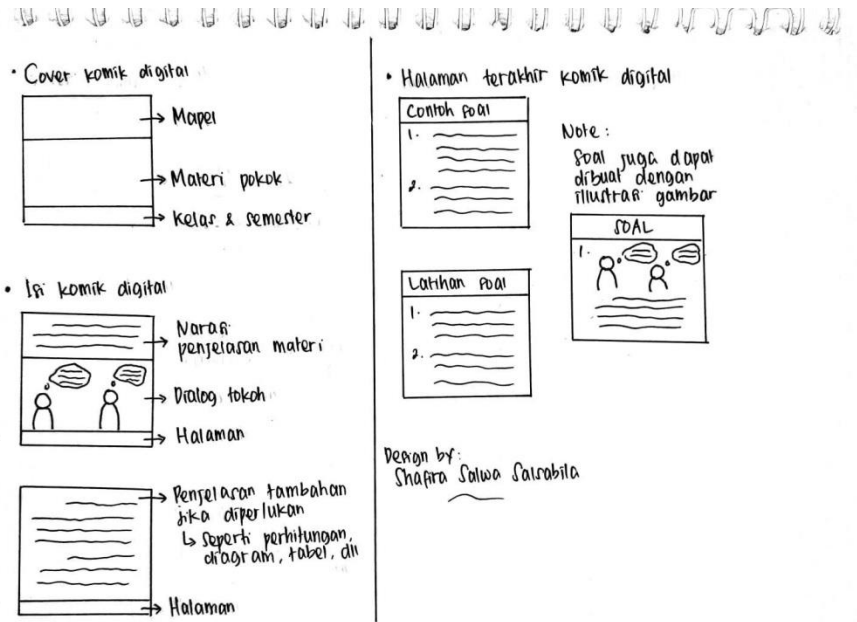 • Cover komik digital
Mapel
Materi pokok
Kelas & semester
• Isi komik digital
Narasi
penjelasan materi
Dialog tokoh
Halaman
Penjelasan tambahan
jika diperlukan
↳ seperti perhitungan,
diagram, tabel, dll
Halaman
• Halaman terakhir komik digital
Contoh soal
1.
2.
Note :
Soal juga dapat
dibuat dengan
illustrasi gambar
SOAL
1.
Latihan soal
1.
2.
Design by:
Shafira Salwa Salsabila